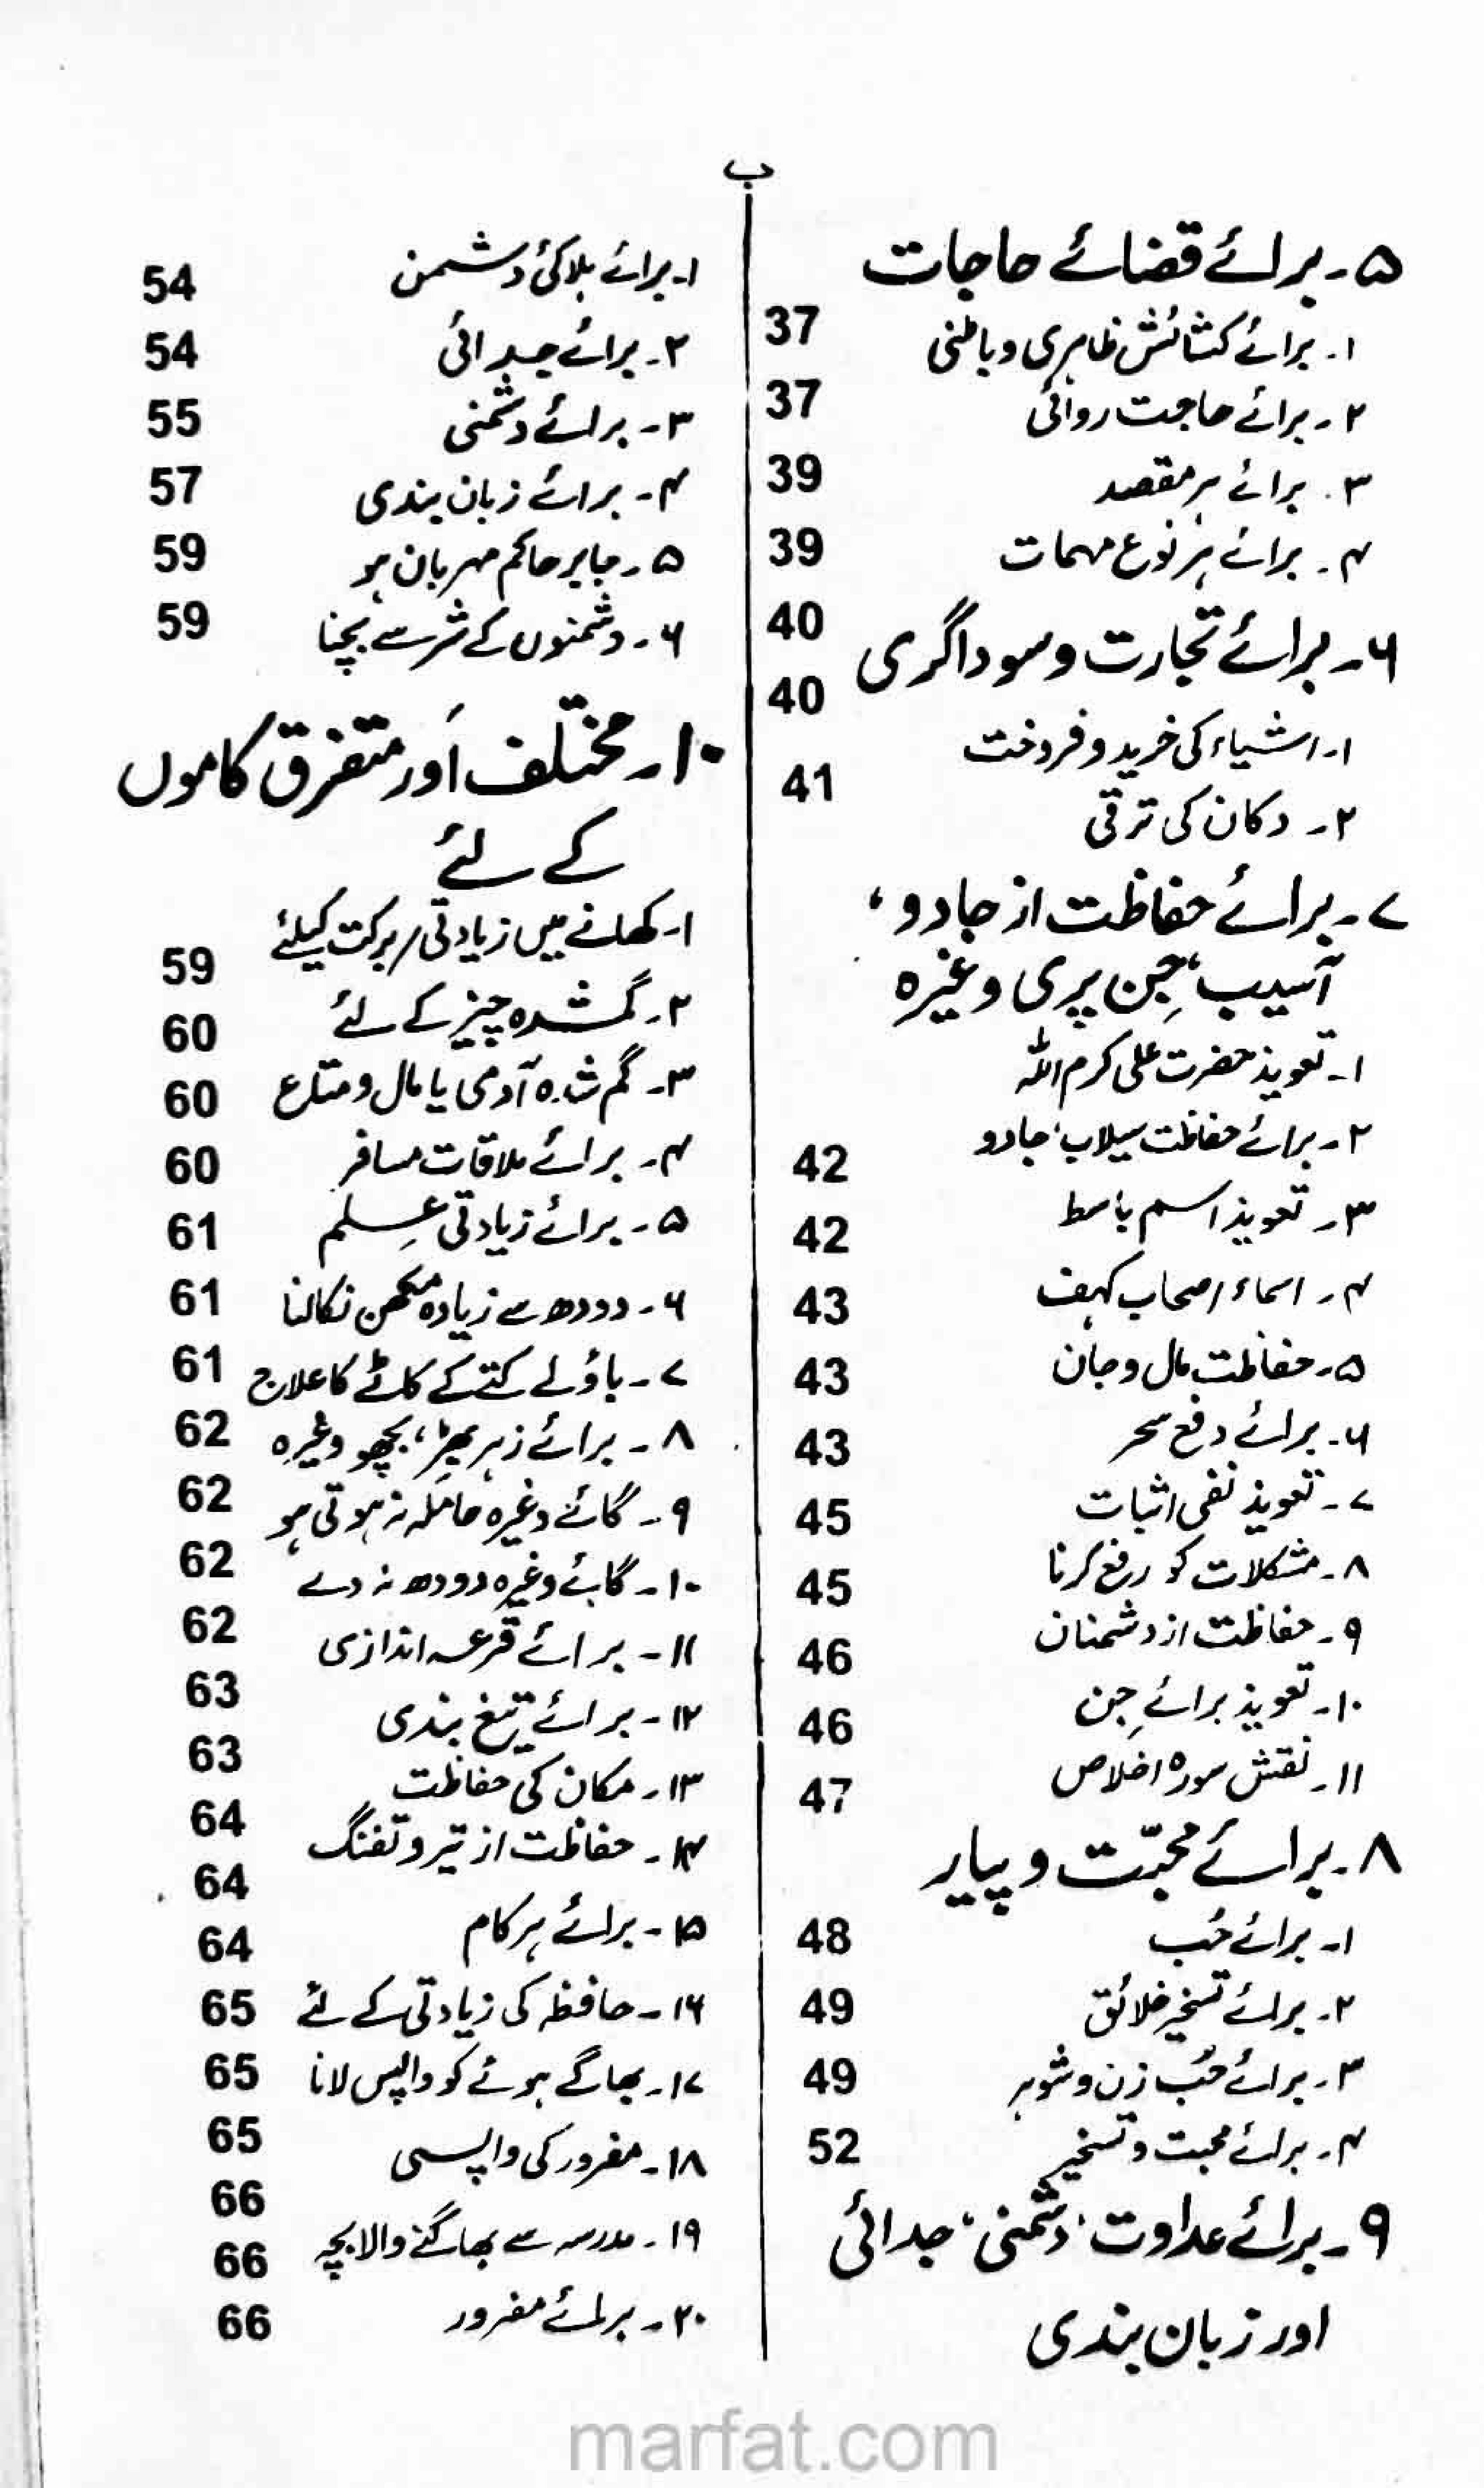 ب
۵۔ برائے قضائے حاجات
۱۔ برائے کشائش ظاہری و باطنی 37
۲۔ برائے حاجت روائی 37
۳۔ برائے ہر مقصد 39
۴۔ برائے ہر نوع مہمات 39
40
۶۔ برائے تجارت و سوداگری
40
۱۔ اشیاء کی خرید و فروخت
41
۲۔ دکان کی ترقی
۷۔ برائے حفاظت از جادو،
آسیب، جِن پری وغیرہ
۱۔ تعویذ حضرت علی کرم اللہ
۲۔ برائے حفاظت سیلاب، جادو 42
۳۔ تعویذ اسم باسط 42
۴۔ اسماء اصحاب کہف 43
۵۔ حفاظت مال و جان 43
۶۔ برائے دفع سحر 43
۷۔ تعویذ نفی اثبات 45
۸۔ مشکلات کو رفع کرنا 45
۹۔ حفاظت از دشمنان 46
۱۰۔ تعویذ برائے جِن 46
۱۱۔ نقش سورہ اخلاص 47
۸۔ برائے محبّت و پیار
۱۔ برائے حُب 48
۲۔ برائے تسخیر خلائق 49
۳۔ برائے حُب زن و شوہر 49
۴۔ برائے محبت و تسخیر 52
۹۔ برائے عداوت، دشمنی، جدائی
اور زبان بندی
۱۔ برائے ہلاکئ دشمن 54
۲۔ برائے جدائی 54
۳۔ برائے دشمنی 55
۴۔ برائے زبان بندی 57
۵۔ جابر حاکم مہربان ہو 59
۶۔ دشمنوں کے شر سے بچنا 59
۱۰۔ مختلف اَور متفرق کاموں
کے لئے
۱۔ کھانے میں زیادتی / برکت کیلئے 59
۲۔ گمشدہ چیز کے لئے 60
۳۔ گم شدہ آدمی یا مال و متاع 60
۴۔ برائے ملاقات مسافر 60
۵۔ برائے زیادتی عِلم 61
۶۔ دودھ سے زیادہ مکھن نکالنا 61
۷۔ باؤلے کتے کے کاٹے کا علاج 61
۸۔ برائے زہر بھڑ، بچھو وغیرہ 62
۹۔ گائے وغیرہ حاملہ نہ ہوتی ہو 62
۱۰۔ گائے وغیرہ دودھ نہ دے 62
۱۱۔ برائے قرعہ اندازی 62
۱۲۔ برائے تیغ بندی 63
۱۳۔ مکان کی حفاظت 63
۱۴۔ حفاظت از تیر و تفنگ 64
64
۱۵۔ برائے ہر کام 64
۱۶۔ حافظہ کی زیادتی کے لئے 65
۱۷۔ بھاگے ہوئے کو واپس لانا 65
۱۸۔ مفرور کی واپسی 65
66
۱۹۔ مدرسہ سے بھاگنے والا بچہ 66
۲۰۔ برائے مفرور 66
marfat.com